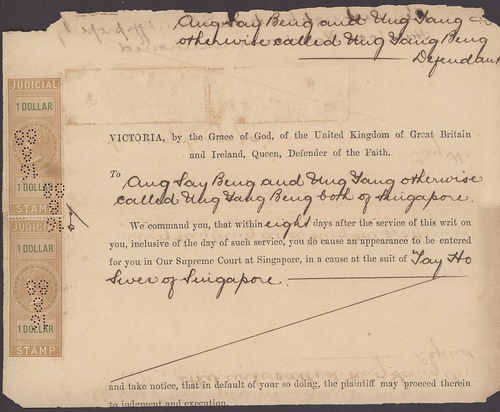 Ang Say Beng and Ung Yang
otherwise called Ung Yang Beng
Defendant
JUDICIAL
1 DOLLAR
1 DOLLAR
STAMP
JUDICIAL
1 DOLLAR
1 DOLLAR
STAMP
VICTORIA, by the Grace of God, of the United Kingdom of Great Britain
and Ireland, Queen, Defender of the Faith.
To Ang Say Beng and Ung Yang otherwise
called Ung Yang Beng both of Singapore.
We command you, that within eight days after the service of this writ on
you, inclusive of the day of such service, you do cause an appearance to be entered
for you in Our Supreme Court at Singapore, in a cause at the suit of Tay Ho
Swee of Singapore.
and take notice, that in default of your so doing, the plaintiff may proceed therein
to judgment and execution.